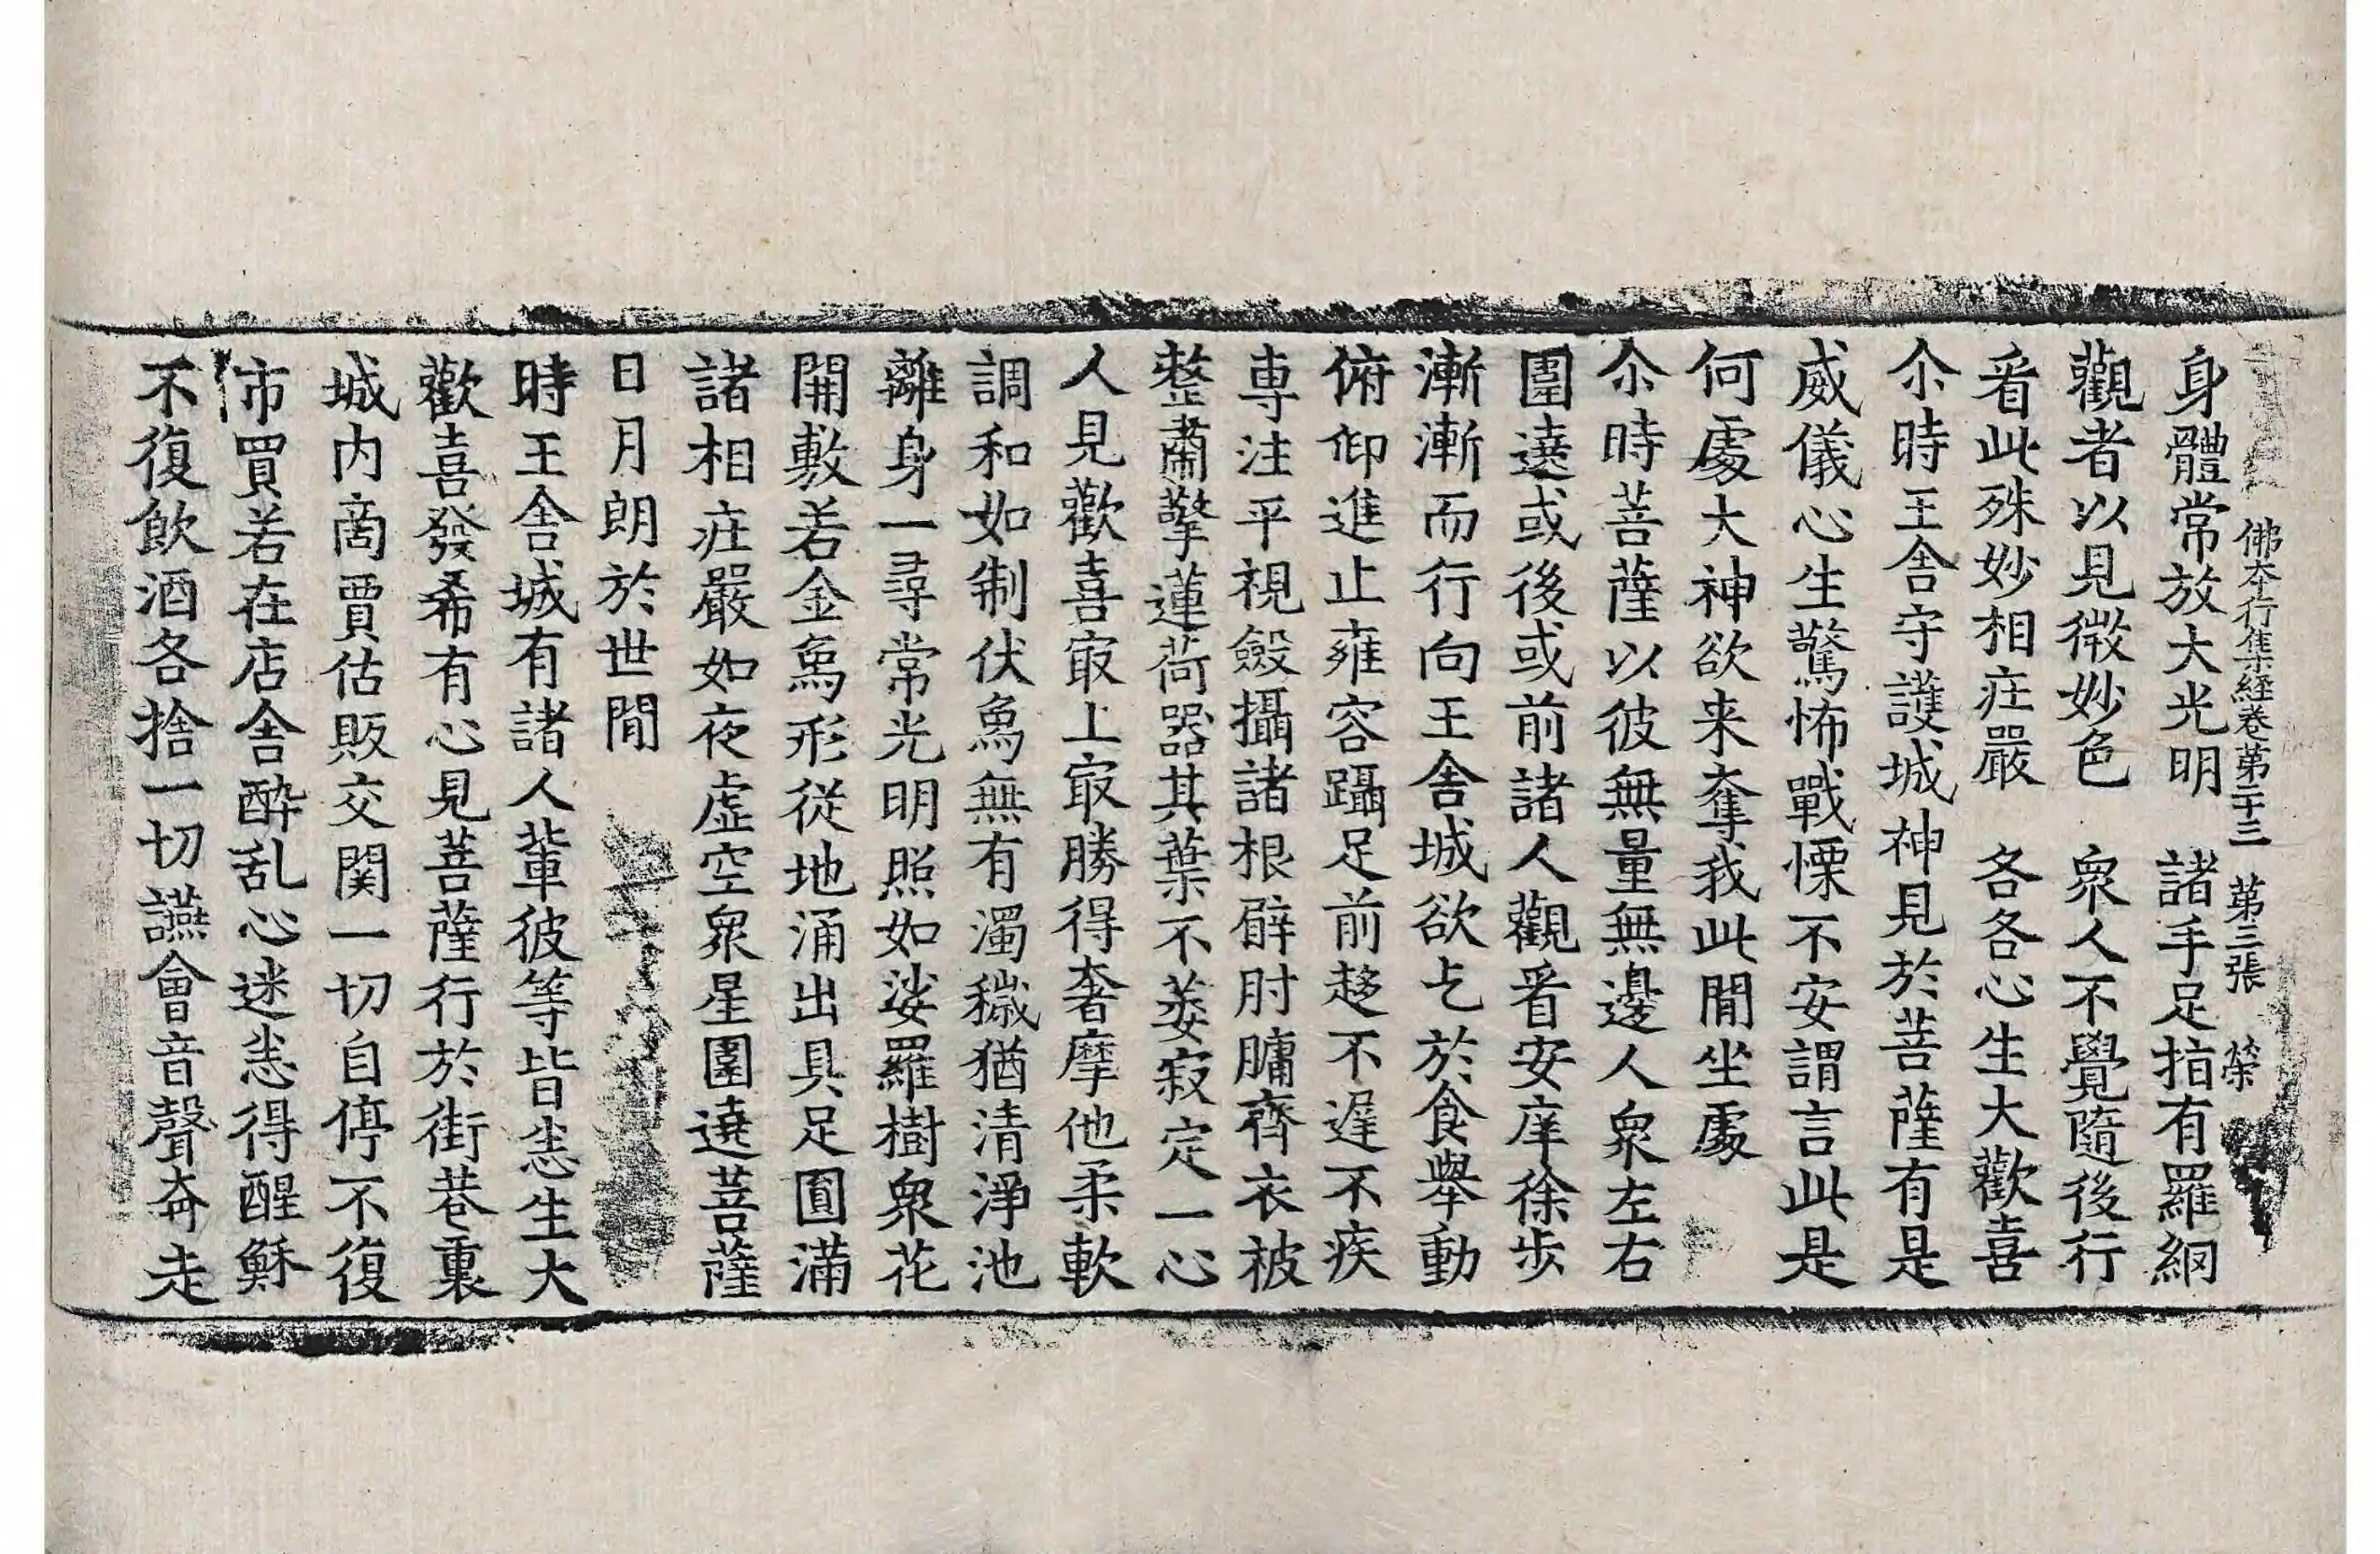 佛本行集經卷第二十三 第三張 榮
身體常放大光明 諸手足指有羅網
觀者以見微妙色 衆人不覺隨後行
看此殊妙相庄嚴 各各心生大歡喜
尒時王舍守護城神見於菩薩有是
威儀心生驚怖戰慄不安謂言此是
何處大神欲来奪我此閒坐處
尒時菩薩以彼無量無邊人衆左右
圍遶或後或前諸人觀看安庠徐步
漸漸而行向王舍城欲乞於食舉動
俯仰進止雍容躡足前趍不遟不疾
専注平視斂攝諸根臂肘牗齊衣被
整肅擎蓮荷器其葉不萎寂定一心
人見歡喜㝡上㝡勝得奢摩他柔軟
調和如制伏象無有濁穢猶清淨池
離身一尋常光明照如娑羅樹衆花
開敷若金象形從地涌出具足圓滿
諸相庄嚴如夜虛空衆星圍遶菩薩
日月朗於世閒
時王舍城有諸人軰彼等皆悉生大
歡喜發希有心見菩薩行於街巷裏
城内啇賈估販交関一切自停不復
市買若在店舍酔乱心迷悉得醒穌
不復飲酒各捨一切讌會音聲奔走